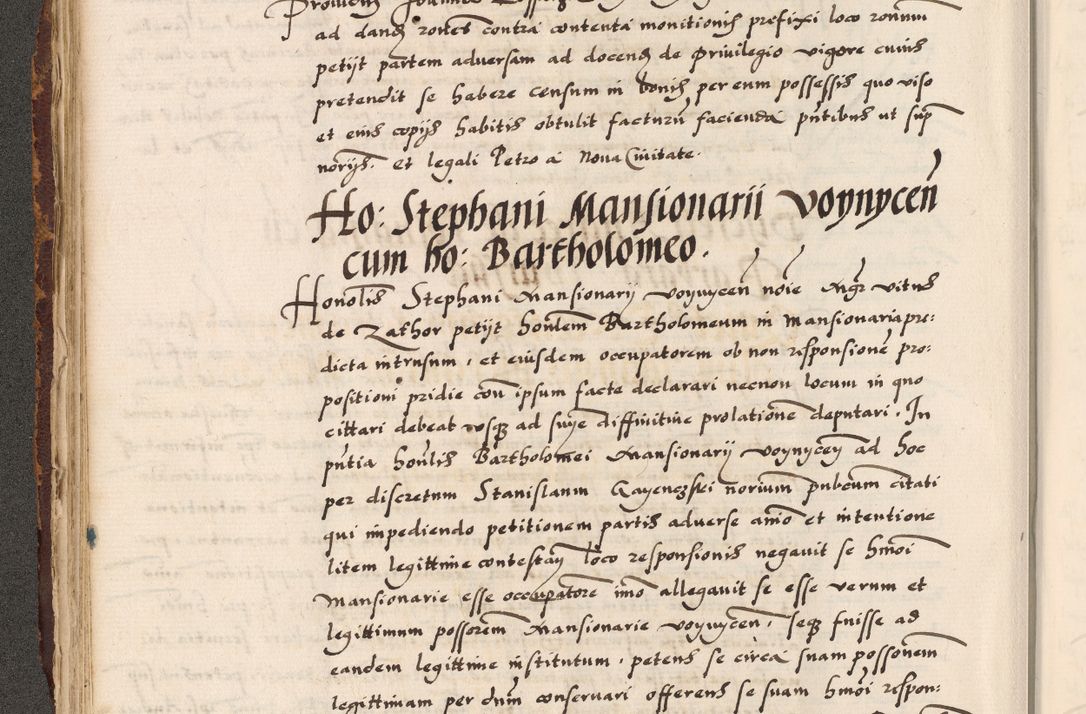 ad dand rones contra contenta monitionis prefixi loco ronum
petijt partem adversam ad docend de privilegio vigore cuius
pretendit se habere censum in bonis per eum possessis quo viso
et eius copijs habitis obtulit facturu facienda pntibus ut sup
norijs. et legali Petro a Nova Civitate.
Ho: Stephani Mansionarii Voynycen
cum ho: Bartholomeo.
Honolis Stephani Mansionarij Voynycen noie Mgr Vitus
de Zathor petijt honlem Bartholomeum in mansionaria pre:
dicta intrusum, et eiusdem occupatorem ob non responsione pro:
positioni pridie con ipsum facte declarari necnon locum in quo
cittari debeat usque ad suye diffinitive prolatione deputari. In
pntia honlis Bartholomei Mansionarij Voynycen ad hoc
per discretum Stanislaum Gayenczski norium pubcum citati
qui impediendo petitionem partis adverse animo et intentione
litem legittime contestan loco responsionis negavit se hmoi
mansionarie esse occupatore imo allegavit se esse verum et
legittimum possorem Mansionarie Voynycen, seque fuisse ad
eandem legittime institutum, petens se circa suam possonem
legittimam per dnm conservari offerens se suam hmoi respon: